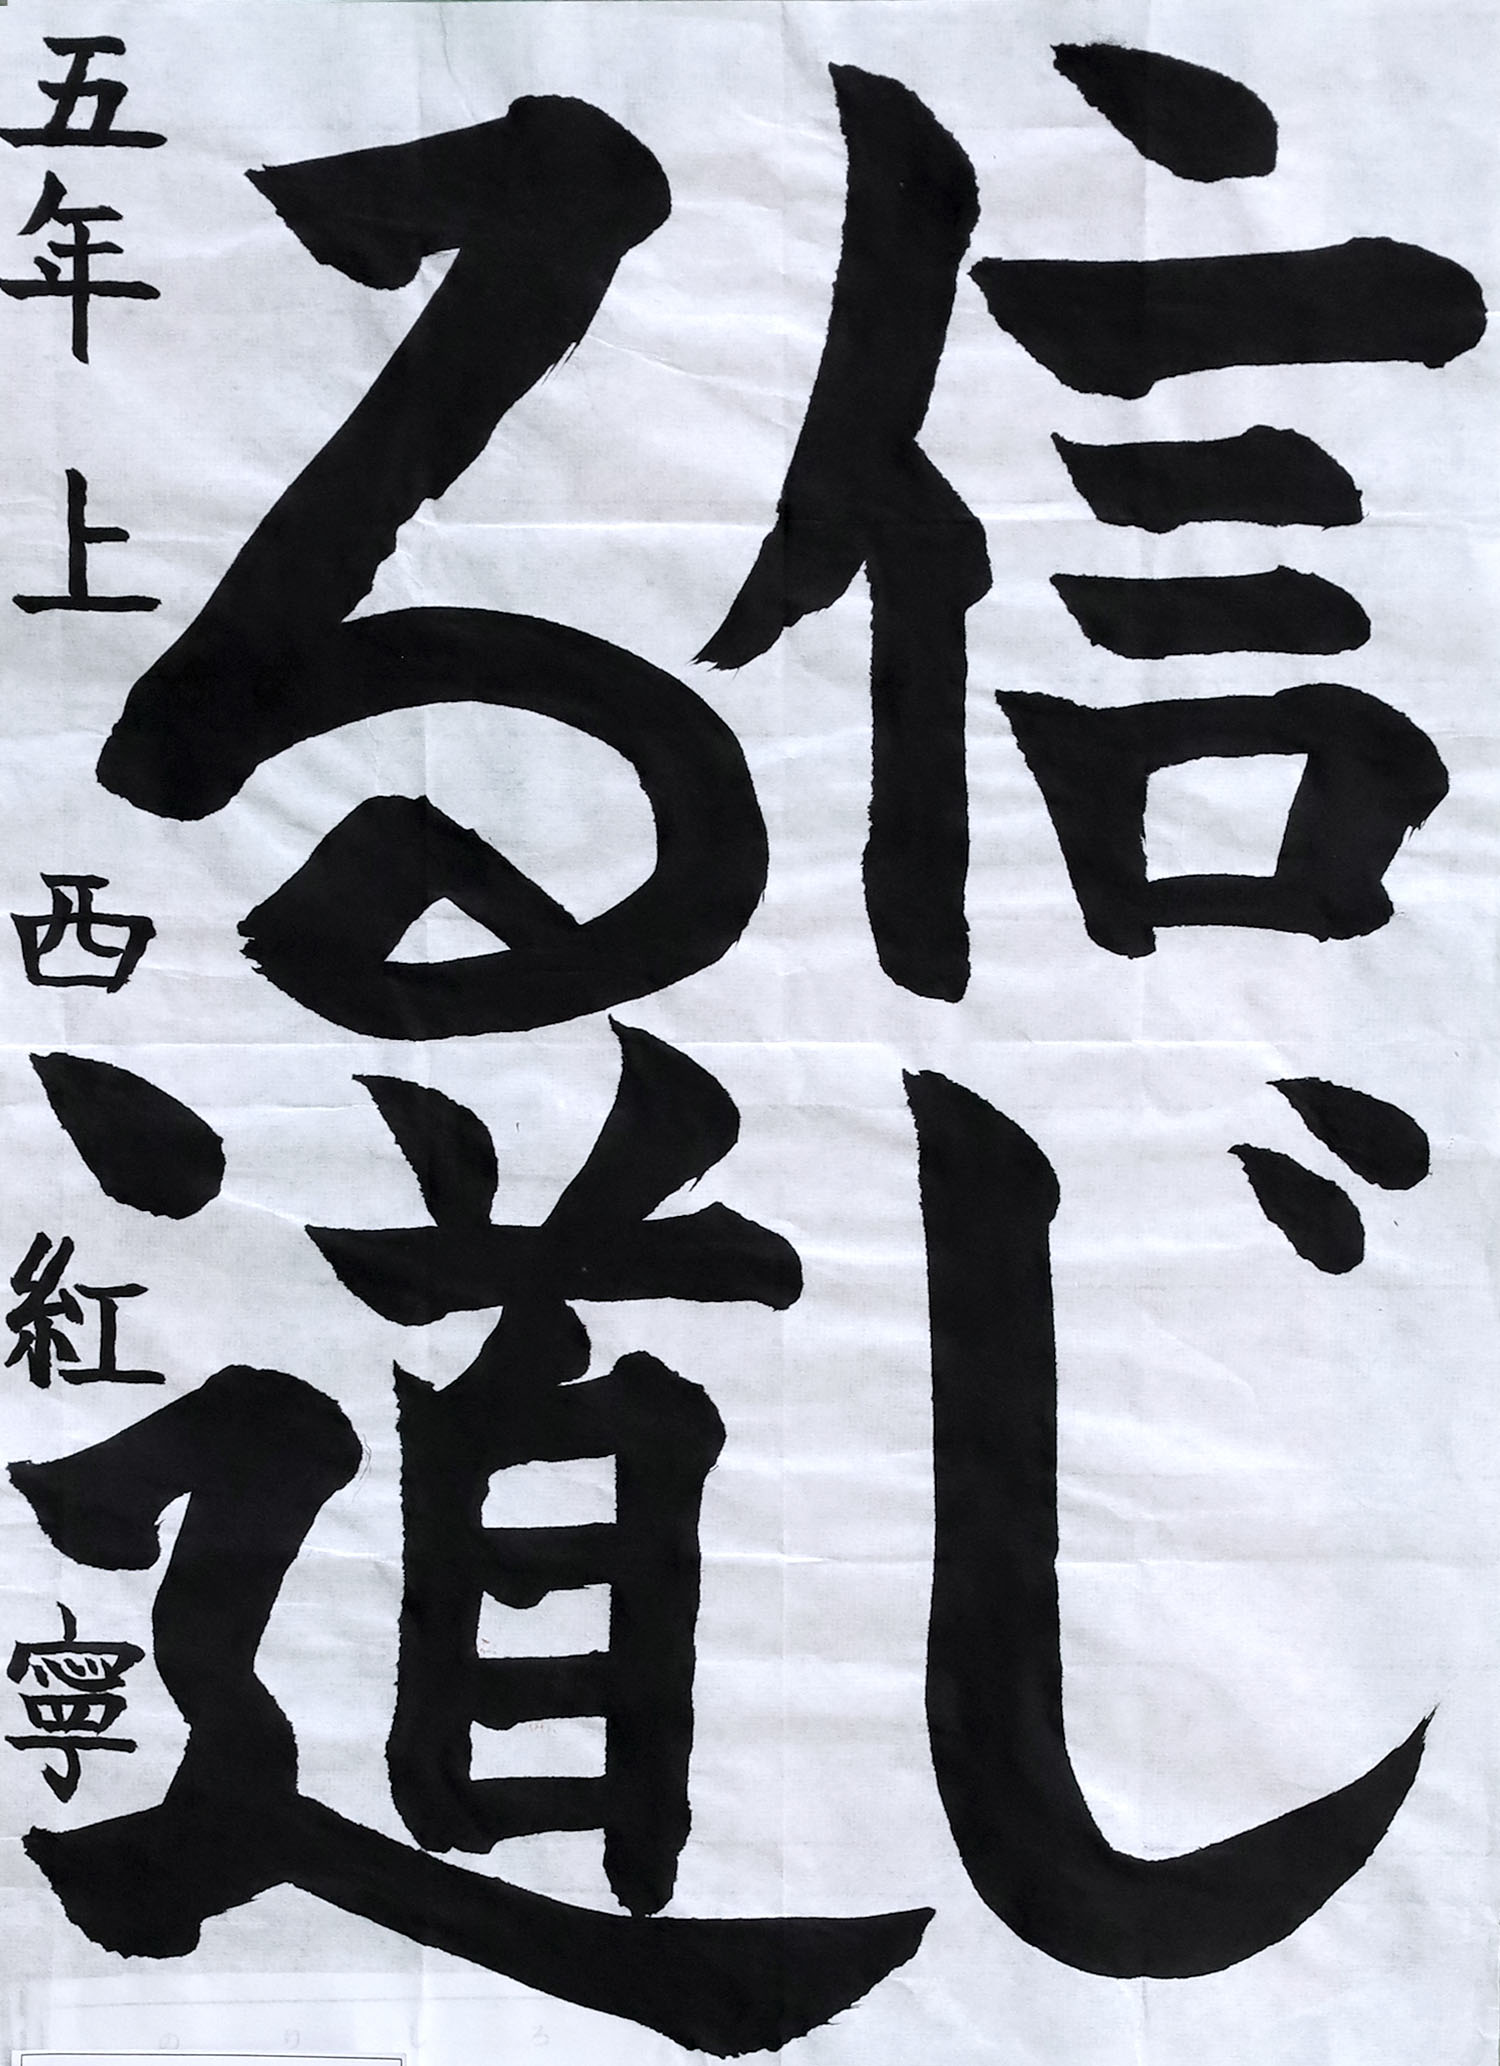 信じ
る道
五年 上西 紅寧